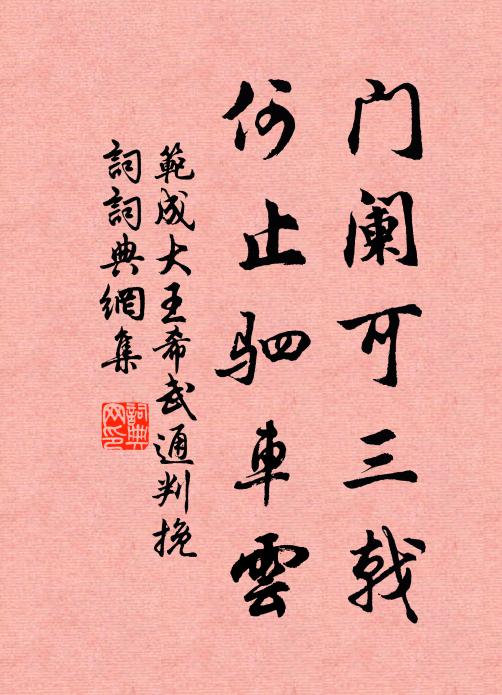 门阑可三戟
何止驷車雲
範成大王希武通判挽
詞詞典網集
詞典
网印